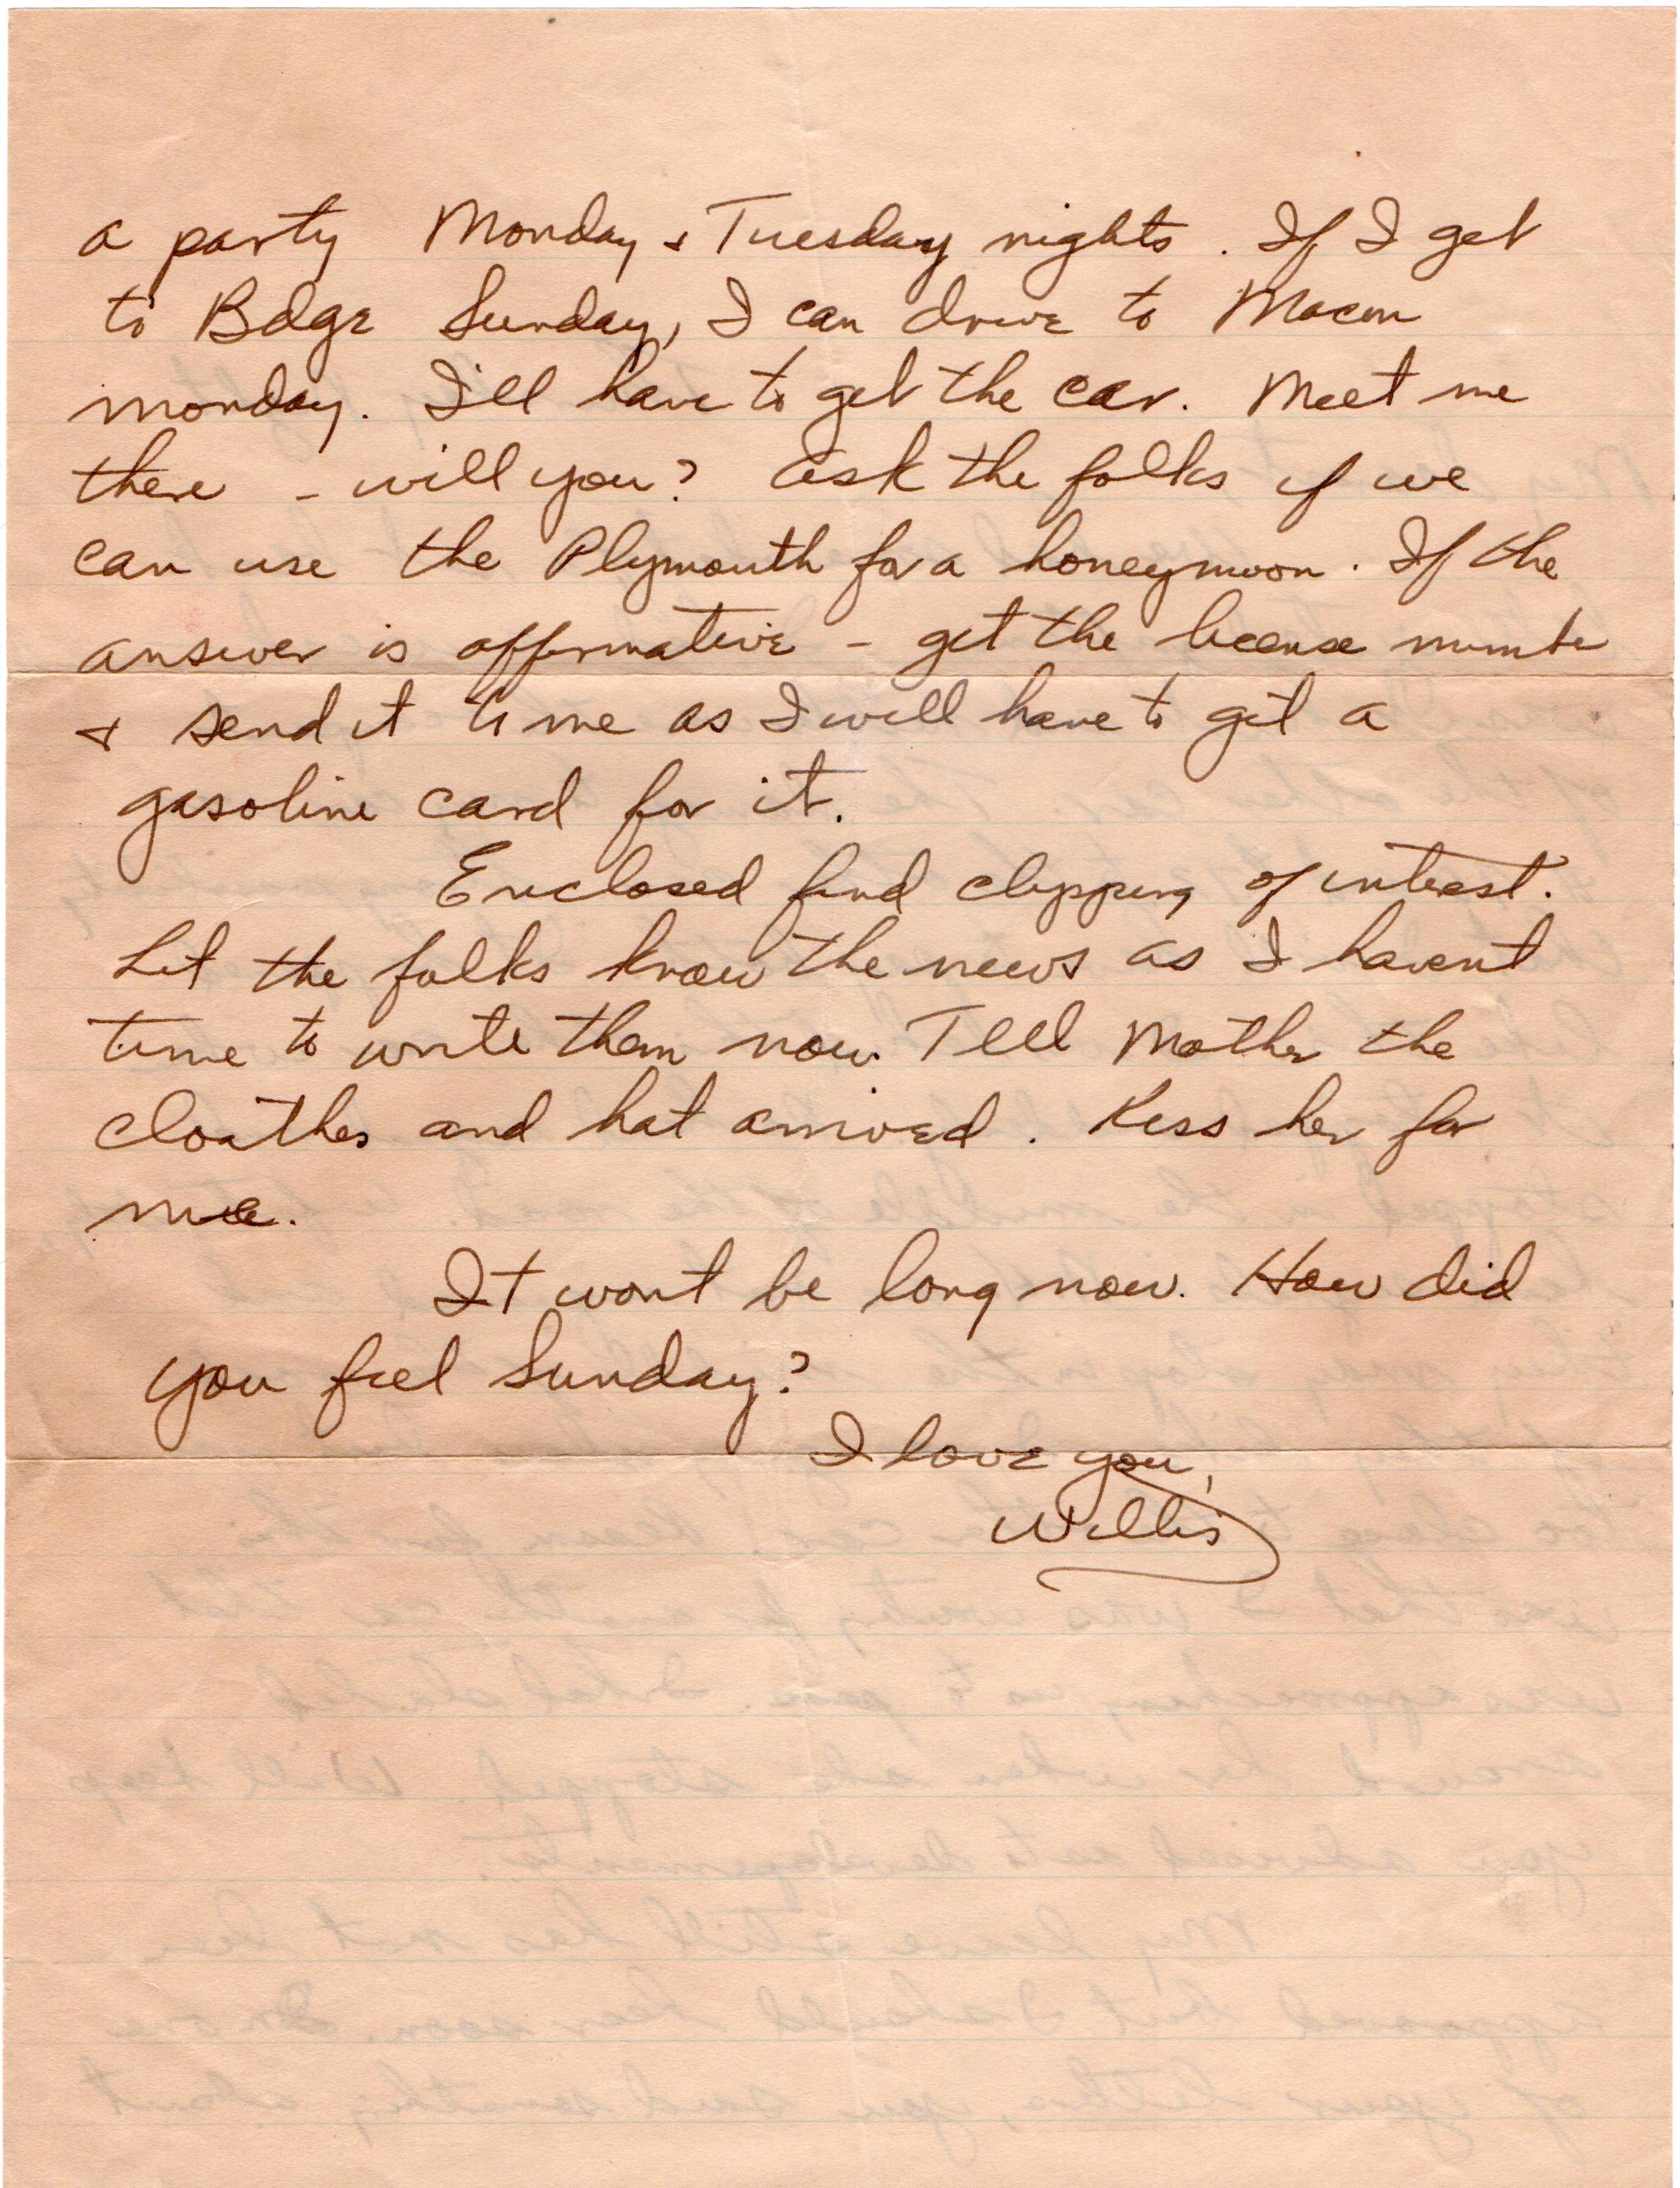 a party Monday & Tuesday nights. If I get
to Bdge Sunday, I can drive to Macon
monday. I'll have to get the car. Meet me
there - will you? Ask the folks if we
can use the Plymouth for a honeymoon. If the
answer is affirmative - get the license number
& send it to me as I will have to get a
gasoline card for it.
Enclosed find clipping of interest.
Let the folks know the news as I havent
time to write them now. Tell Mother the
cloathes and hat arrived. Kiss her for
me.
It wont be long now. How did
you feel Sunday?
I love you,
Willis